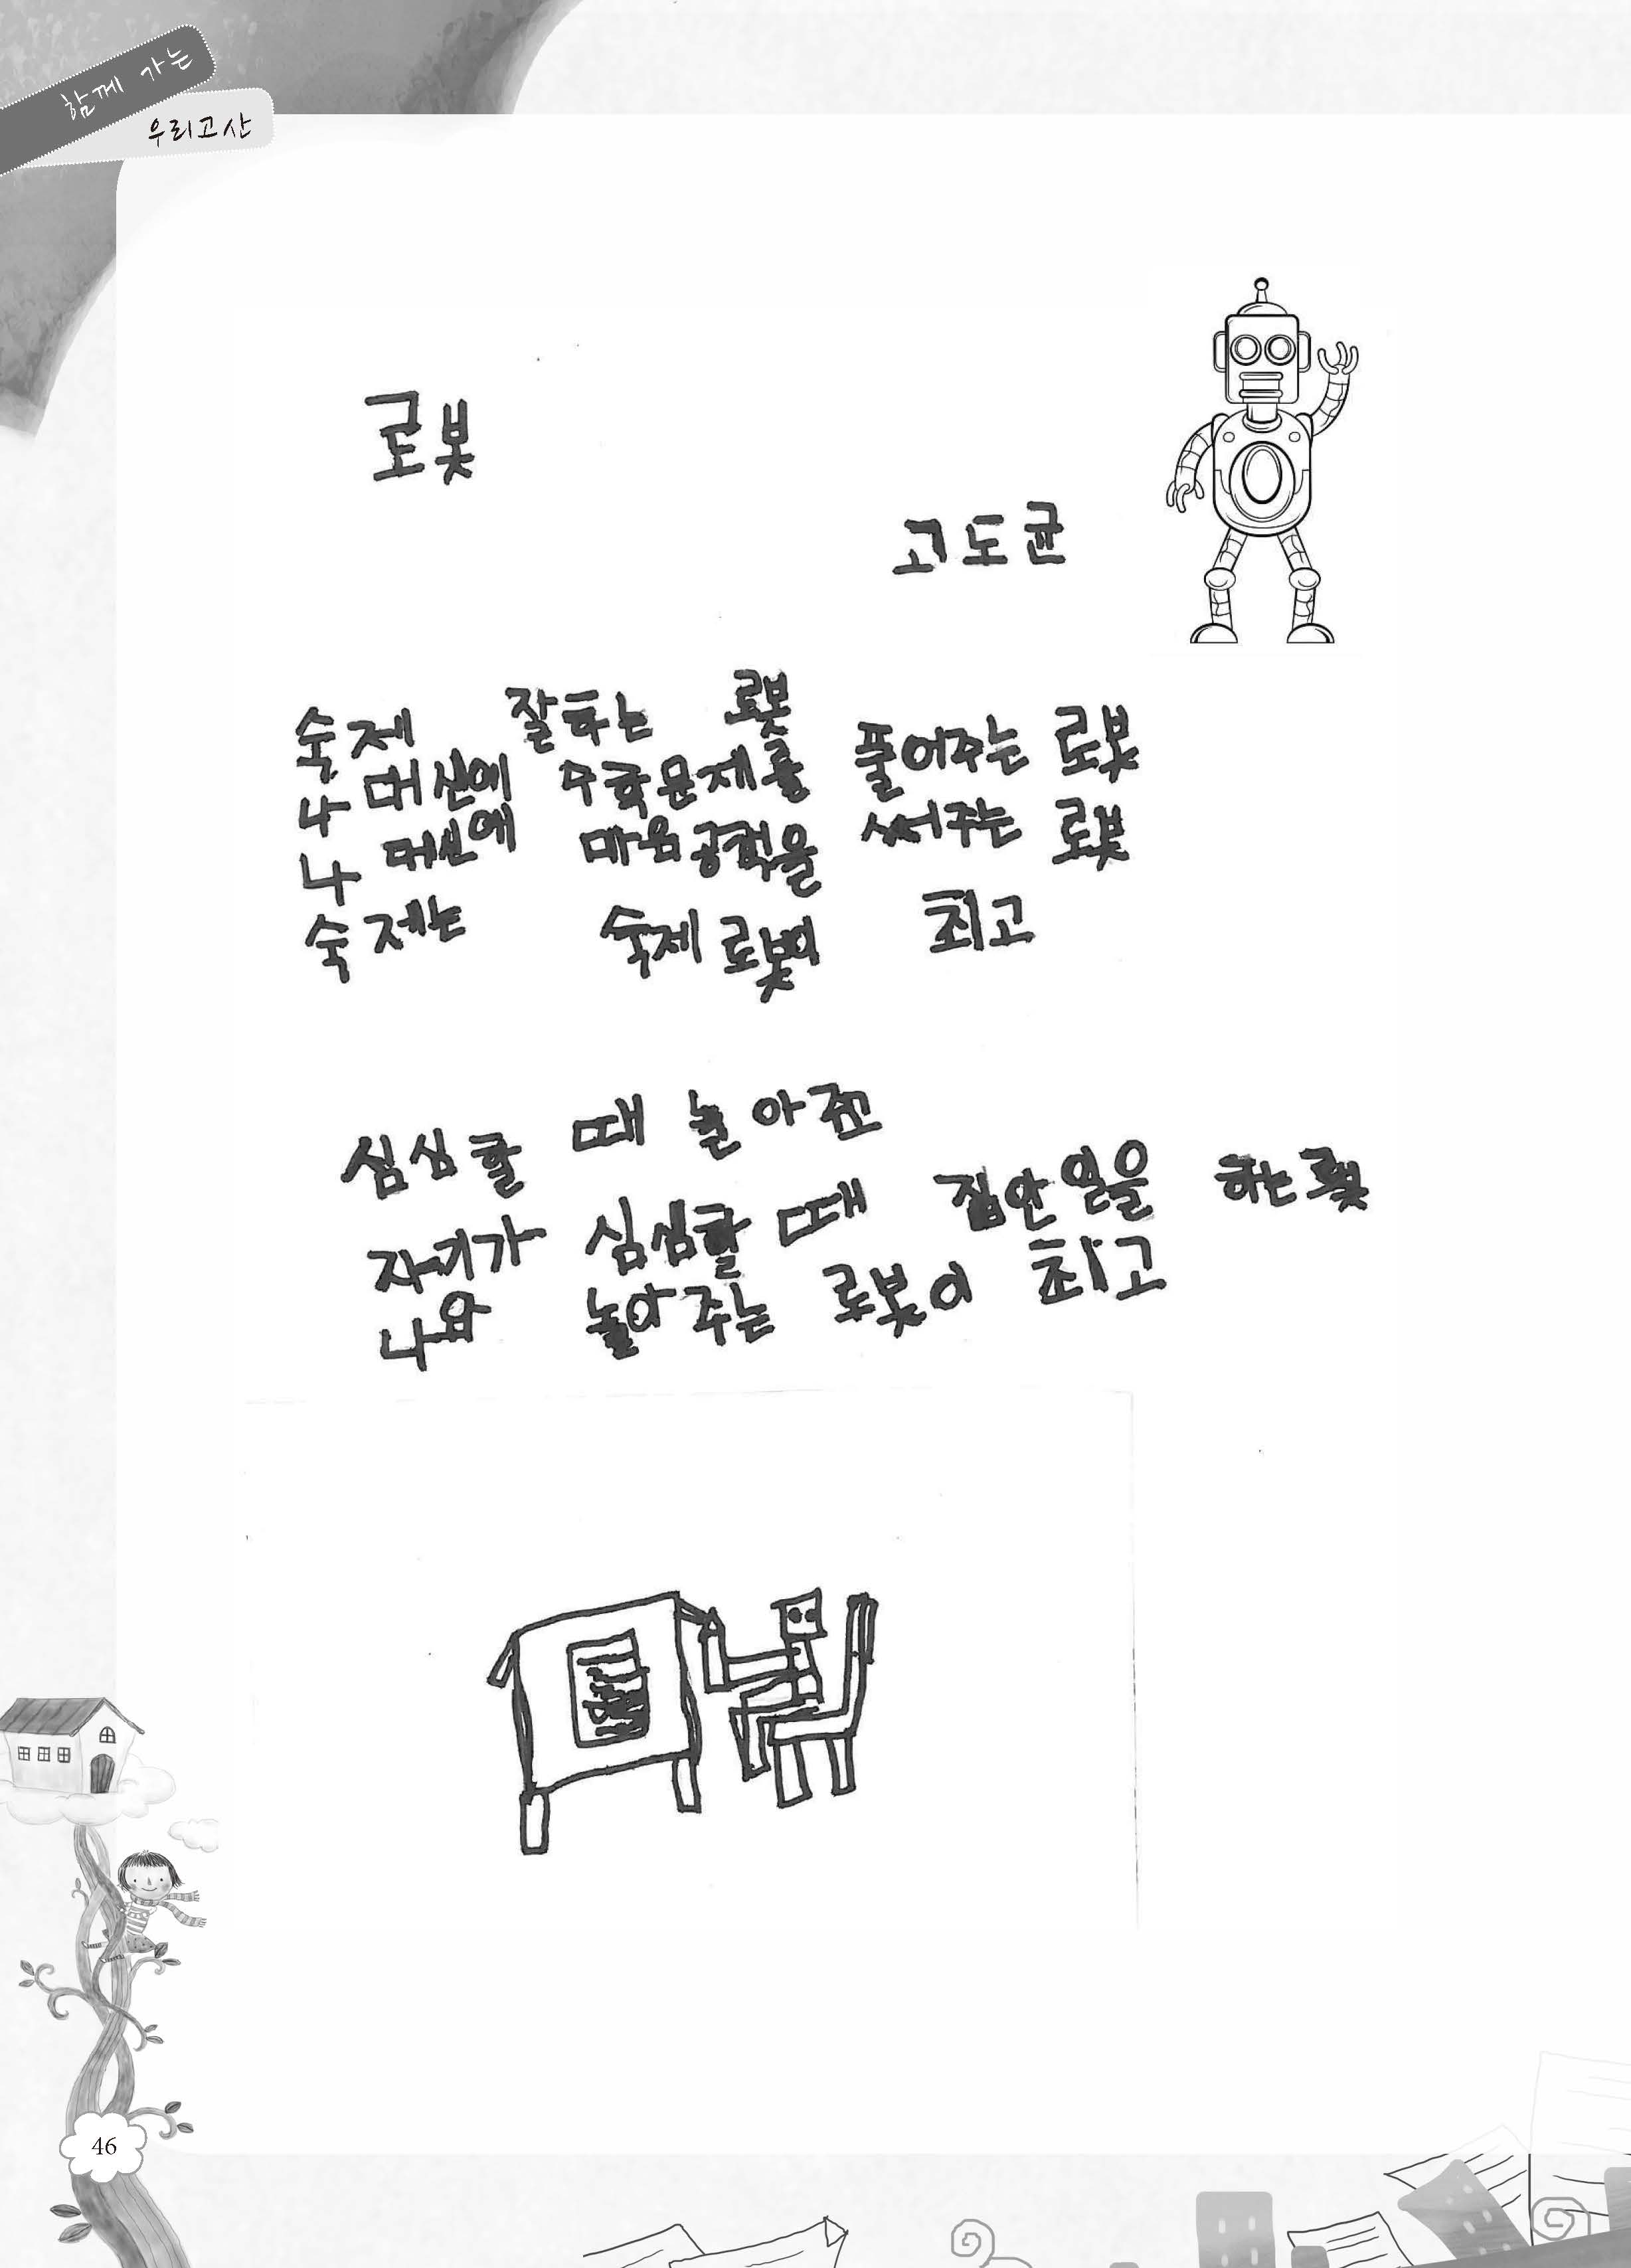 함께 가는
우리고산
로봇
고도균
숙제 잘하는 로봇
나 대신에 수학문제를 풀어주는 로봇
나 대신에 마음공책을 써주는 로봇
숙제는 숙제로봇이 최고
심심할 때 놀아주고
자기가 심심할 때 집안일을 하는 로봇
나와 놀아주는 로봇이 최고
46